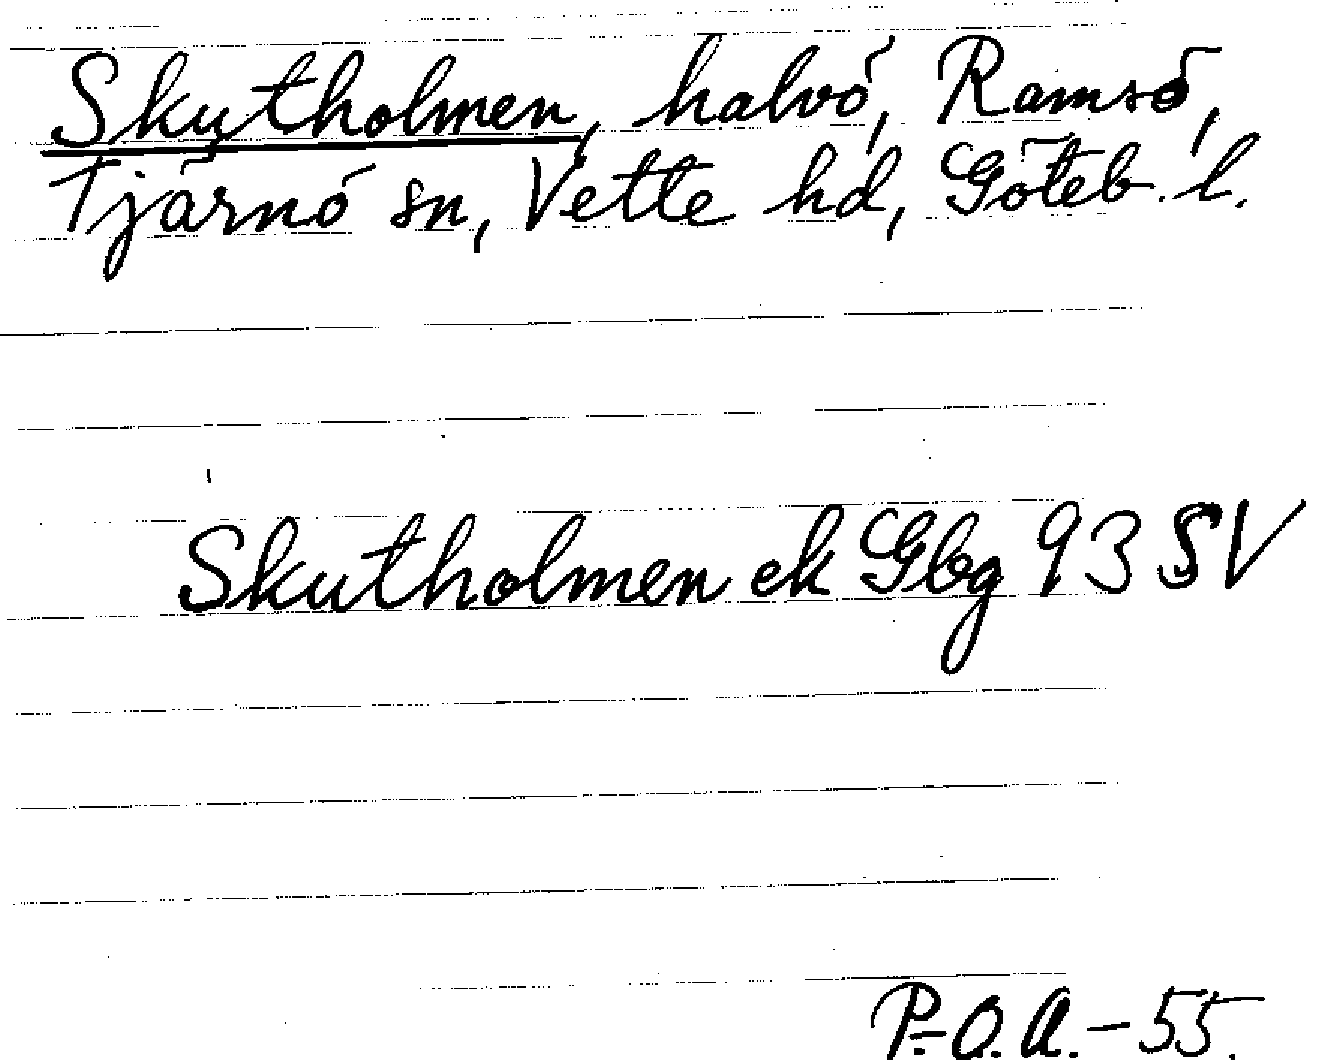 Skutholmen, halvö, Ramsö,
Tjärnö sn, Vette hd, Göteb. l.
Skutholmen ek Gbg 93 SV
P.-O. A. - 55.